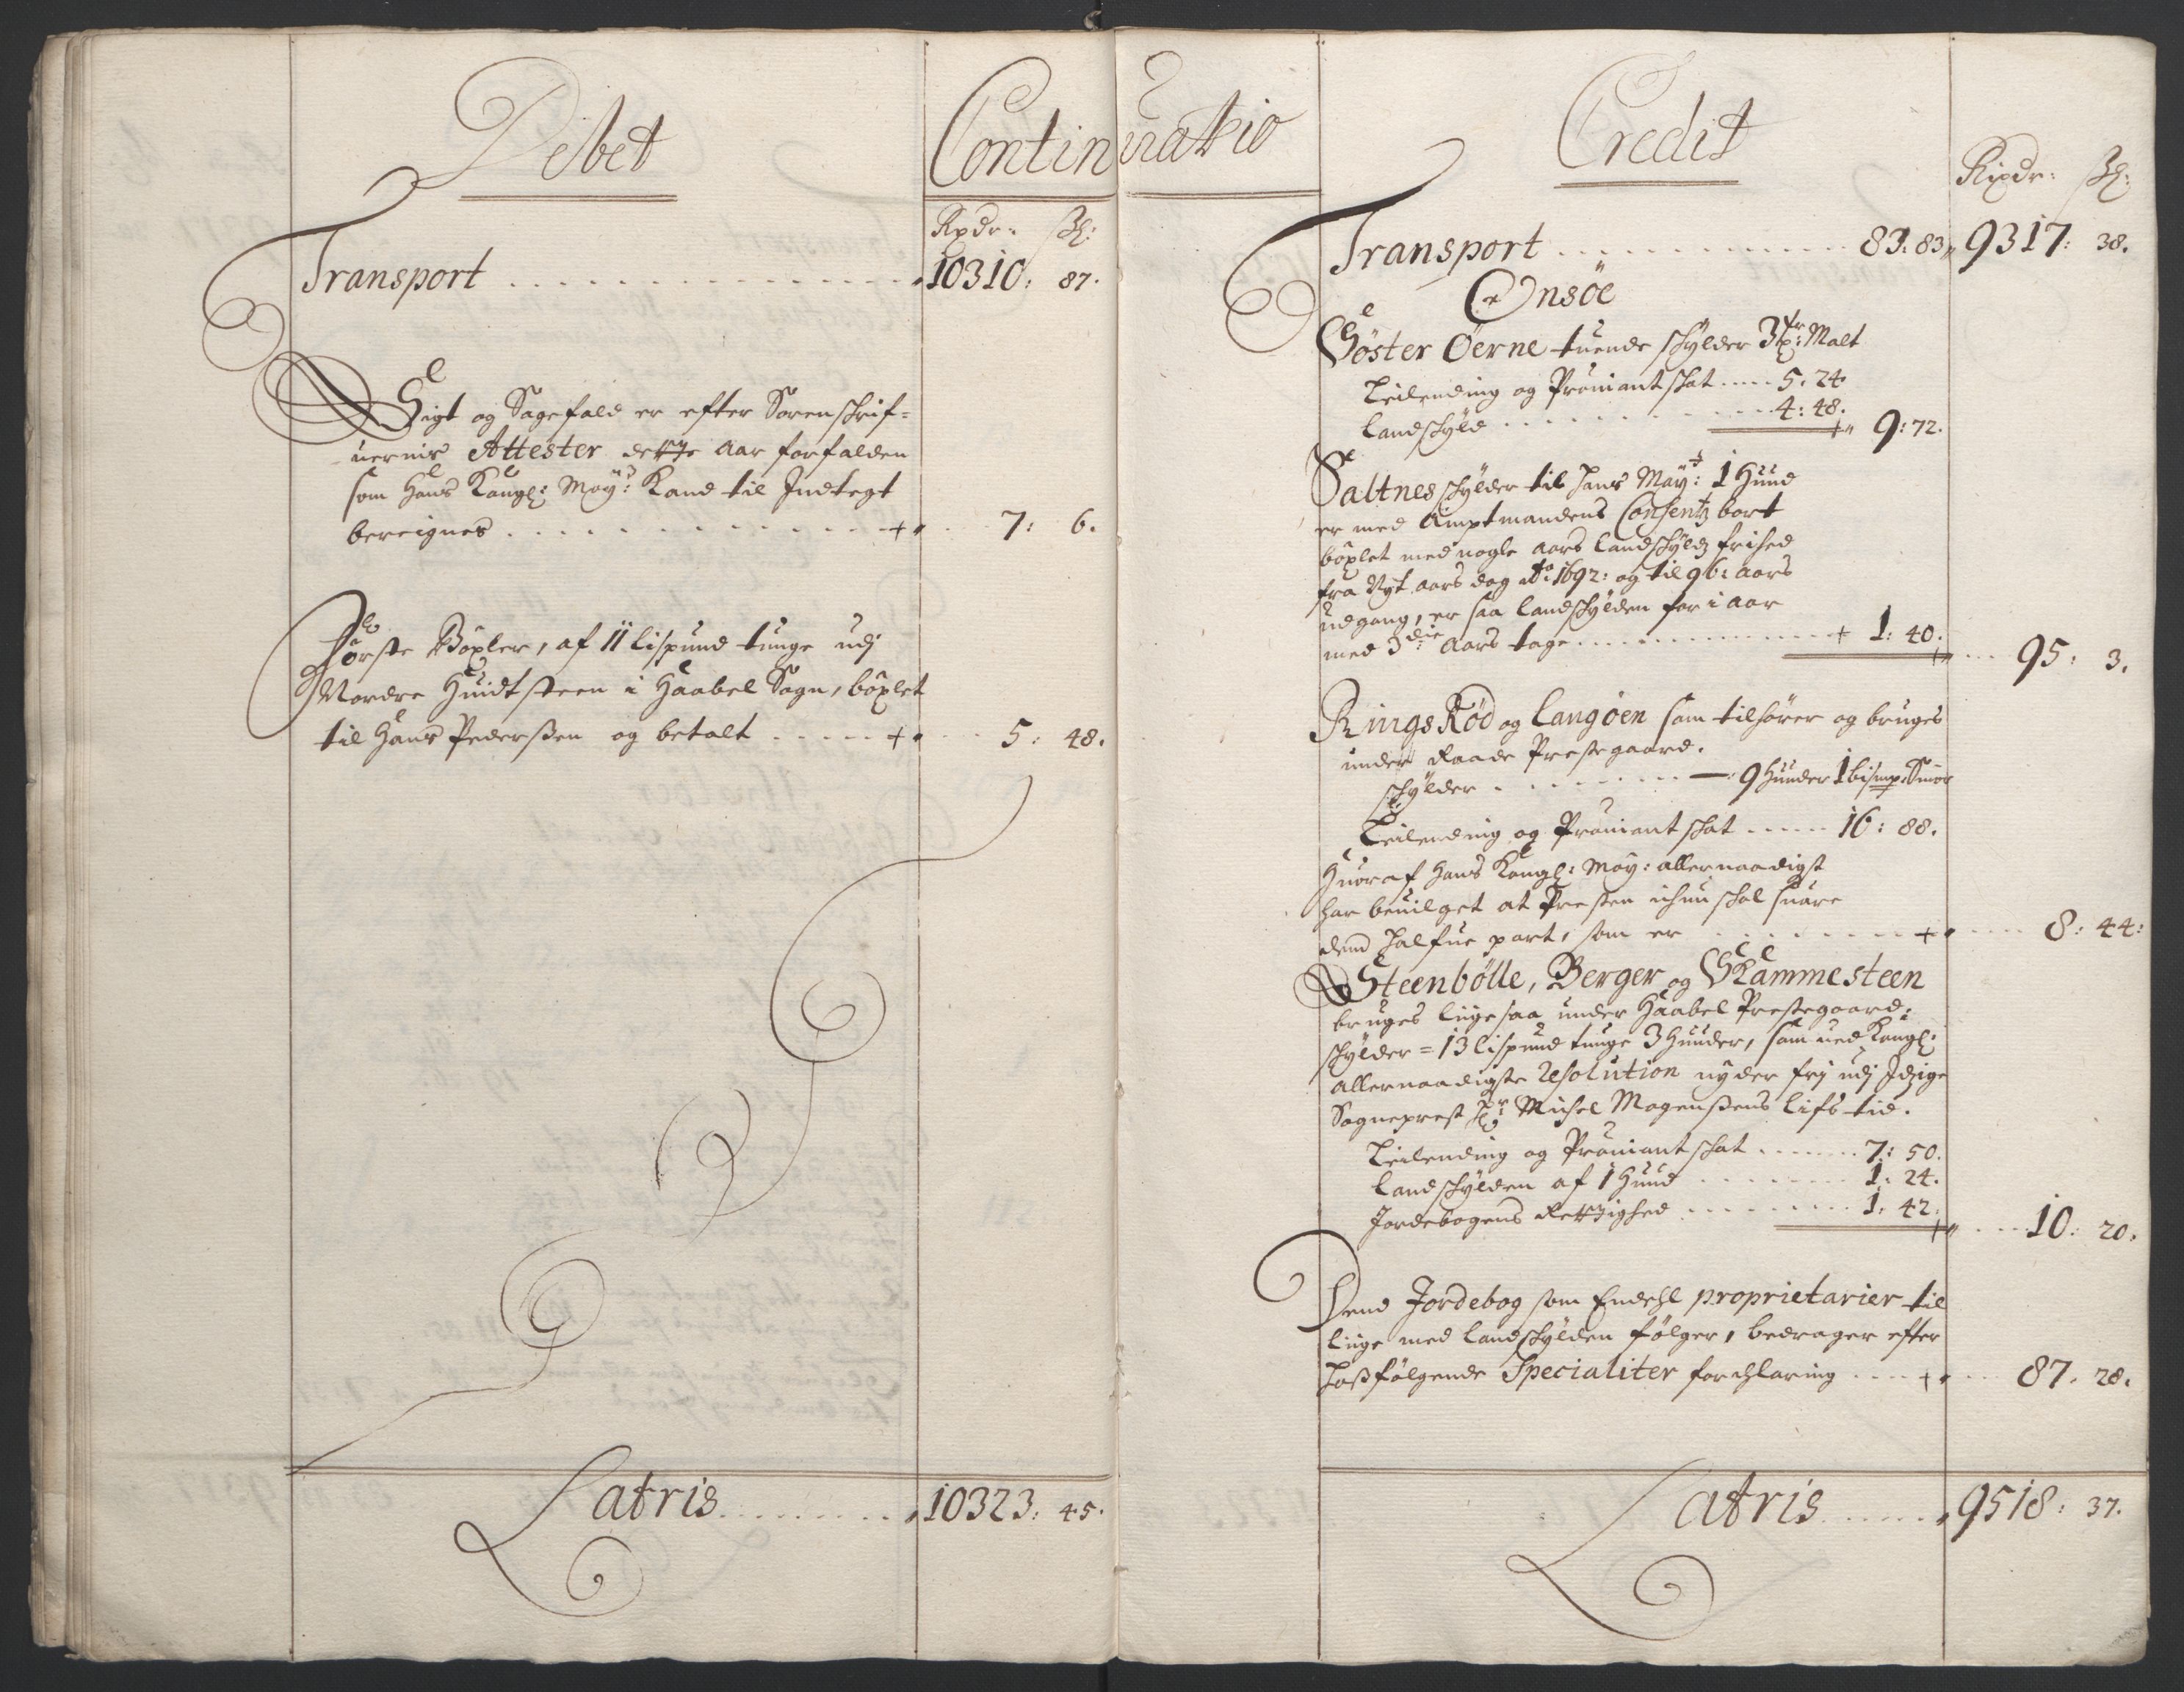 Debet
Continuatio
Rixdr: ß:
Transport 10310: 87.
Sigt og Sagefald er efter Sorenschrif=
uernis Attester dette Aar forfalden
som Hans Kongl: May: Kand til Indtegt
bereignes 7: 6.
Første Böxler, af 11 lispund tunge udj
Nordre Huidtsteen i Haabel Sogn, böxlet
til Hans Pederßen og betalt 5: 48.
Latris 10323: 45.
Credit
Rixdr: ß:
Transport 83. 83 9317: 38.
Onsöe
Söster Öerne tuende schylder 3 Malt
Leilending og Prouiant schat 5. 24
Landschyld 4: 48. 9: 72.
Saltnes schylder til Hans May: 1 Huud
er med Amptmandens Consentz bort
böxlet med nogle Aars Landschyldz frihed
fra Nyt Aars dag Ao 1692: og til 96: Aars
udgang, er saa Landschylden for i Aar
med 3die Aars tage 1: 40. 95: 3.
Rings Röd og Langöen som tilhörer og bruges
under Raade Prestegaard.
schylder 9 Huuder 1 bismp: Smör
Leilending og Prouiant schat 16: 88.
Huoraf Hans Kongl: May: allernaadigst
har beuilget at Presten ichun schal suare
dend halfue part, som er 8: 44:
Steenbölle, Berger og Skammesteen
bruges liigesaa under Haabel Prestegaard,
schylder = 13 lispund tunge 3 Huuder, som ued Kongl:
allernaadigste Resolution nyder frj udj Idzige
Sogneprest Hr: Michel Mogenßens lifs tid.
Leilending og Prouiant schat 7: 50.
Landschylden af 1 Huud 1: 24.
Jordebogens Rettighed 1: 42. 10: 20.
Dend Jordebog som Endehl proprietarier til
liige med Landschylden fölger, bedrager efter
hoßfölgende Specialiter forchlaring 87. 28.
Latris 9518: 37.